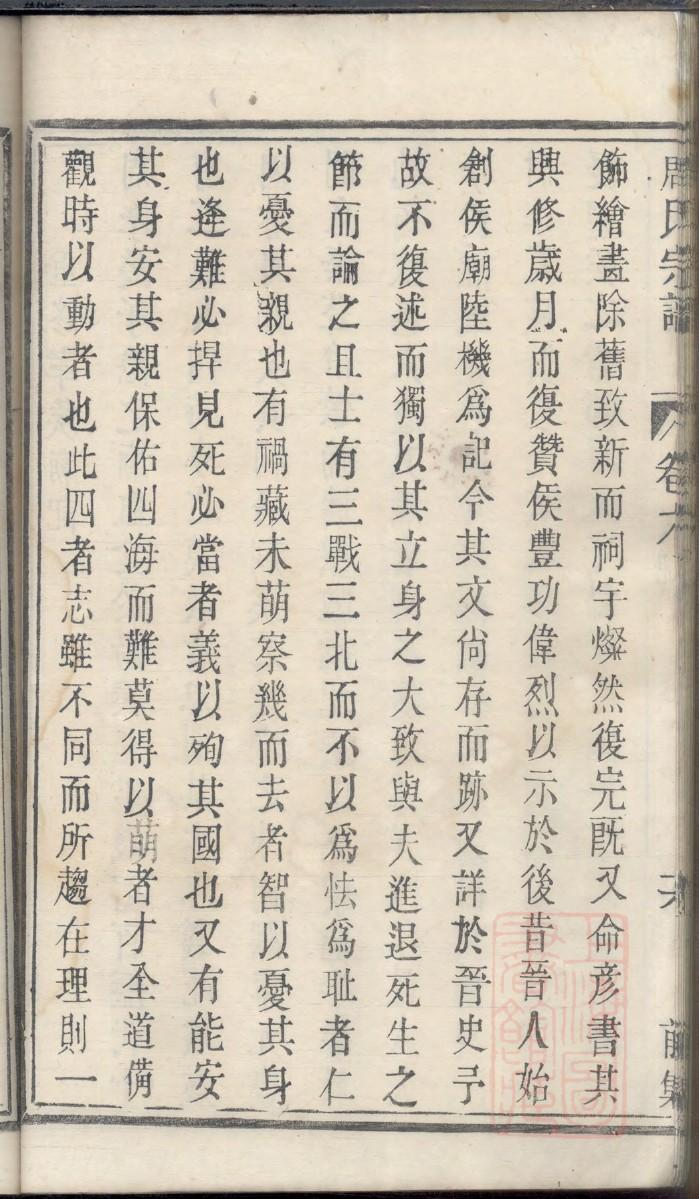 周氏宗譜 卷六 前集
飾繪畫除舊致新而祠宇燦然復完旣又命彦書其
興修歲月而復贊侯豐功偉烈以示於後昔晉人始
創侯廟陸機爲記今其文尙存而跡又詳於晉史予
故不復述而獨以其立身之大致與夫進退死生之
節而論之且士有三戰三北而不以爲怯爲耻者仁
以憂其親也有禍藏未萌察幾而去者智以憂其身
也逢難必捍見死必當者義以殉其國也又有能安
其身安其親保佑四海而難莫得以萌者才全道備
觀時以動者也此四者志雖不同而所趨在理則一